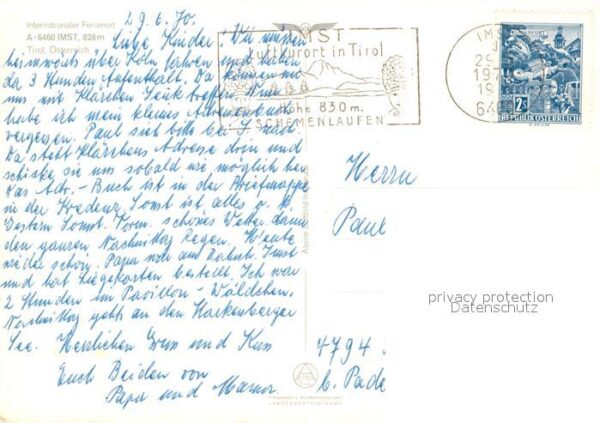 Internationaler Ferienort
A-6460 IMST, 828 m
Tirol, Österreich
29.6.70.
Liebe Kinder! Wir müssen
heimwärts über Köln fahren und haben
da 3 Stunden Aufenthalt. Da können wir
uns mit Klärchen Seuk treffen. Nun
habe ich mein kleines Adressenbuch
vergessen. Paul sieh bitte bei I. nach.
Da steht Klärchens Adresse drin und
schicke sie uns sobald wie möglich her
Das Adr.-Buch ist in der Briefmappe
in der Kredenz. Sonst ist alles o. K.
Gestern Sonnt. Vorm. schönes Wetter dann
den ganzen Nachmittag Regen. Heute
wieder schön. Papa war am Bahnh. Imst
und hat Liegekarten bestellt. Ich war
2 Stunden im Pavillon-Wäldchen.
Nachmittag gehts an den Starkenberger
See. Herzlichen Gruss und Kuss
Euch Beiden von
Papa und Mama.
IMST
Luftkurort in Tirol
Höhe 830 m.
SCHEMENLAUFEN
IMST
29.
197
18
6460
KLAGENFURT
2S
REPUBLIK ÖSTERREICH
Herrn
Paul
4794
b. Pade
privacy protection
Datenschutz